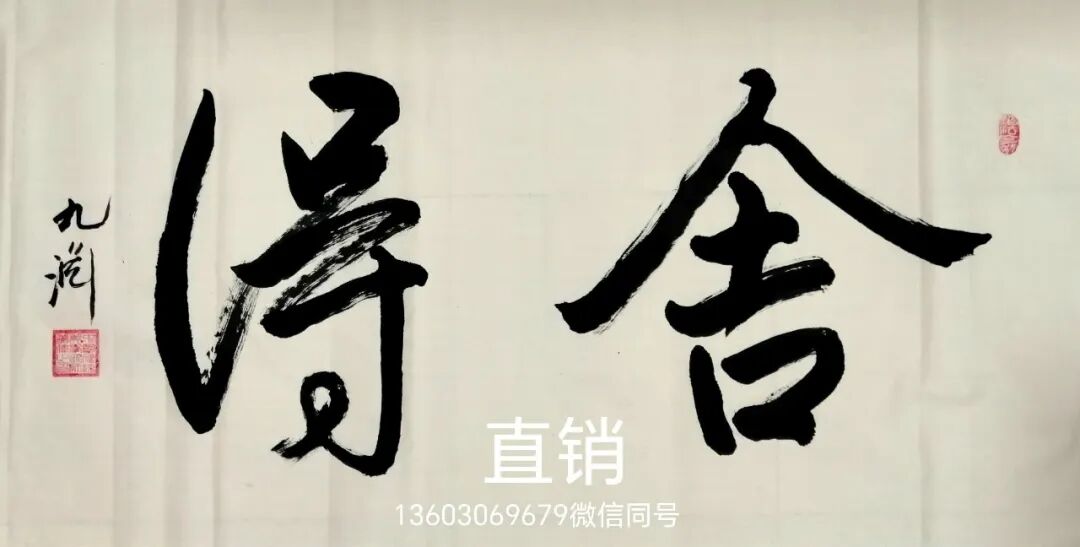 舍得
九渊
直销
13603069679微信同号